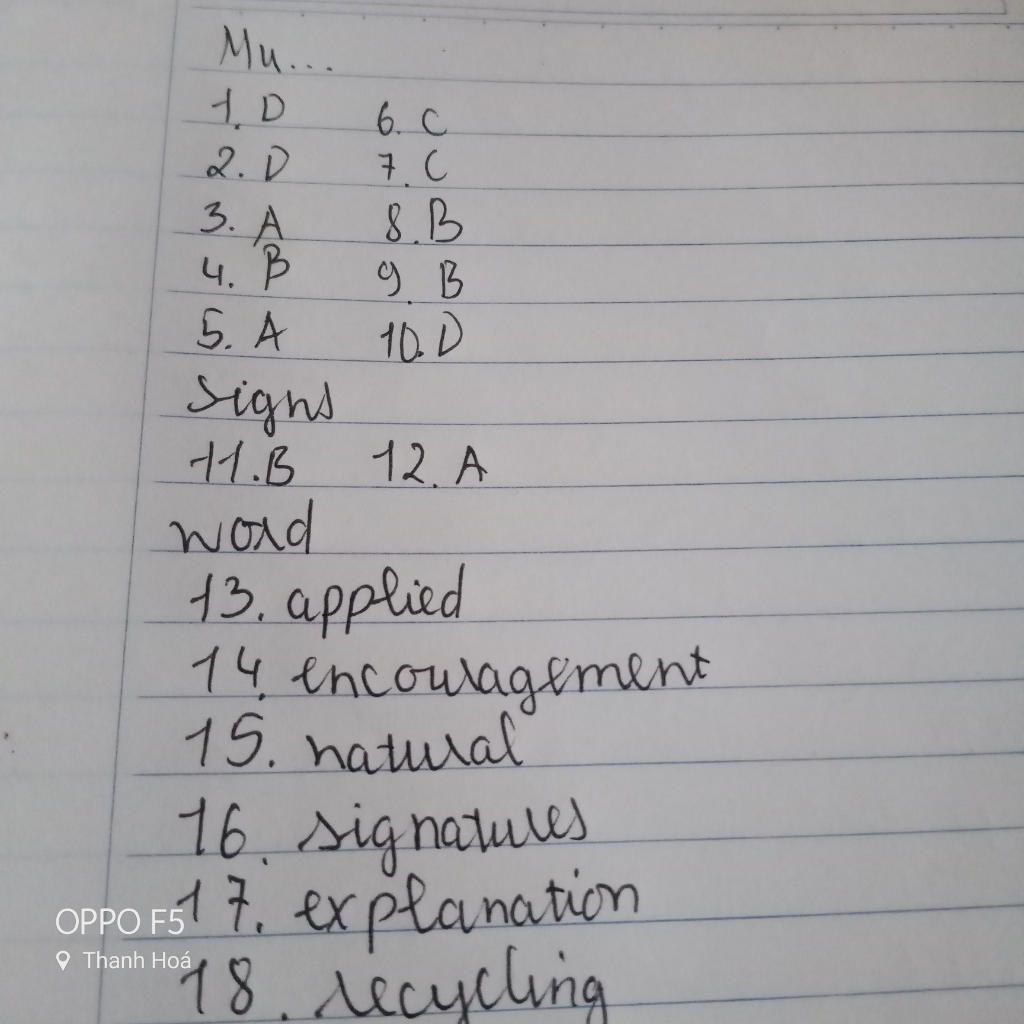 Mu...
1. D 6. C
2. D 7. C
3. A 8. B
4. B 9. B
5. A 10. D
Signs
11. B 12. A
Word
13. applied
14. encouragement
15. natural
16. signatures
17. explanation
18. recycling
OPPO F5
Thanh Hoá